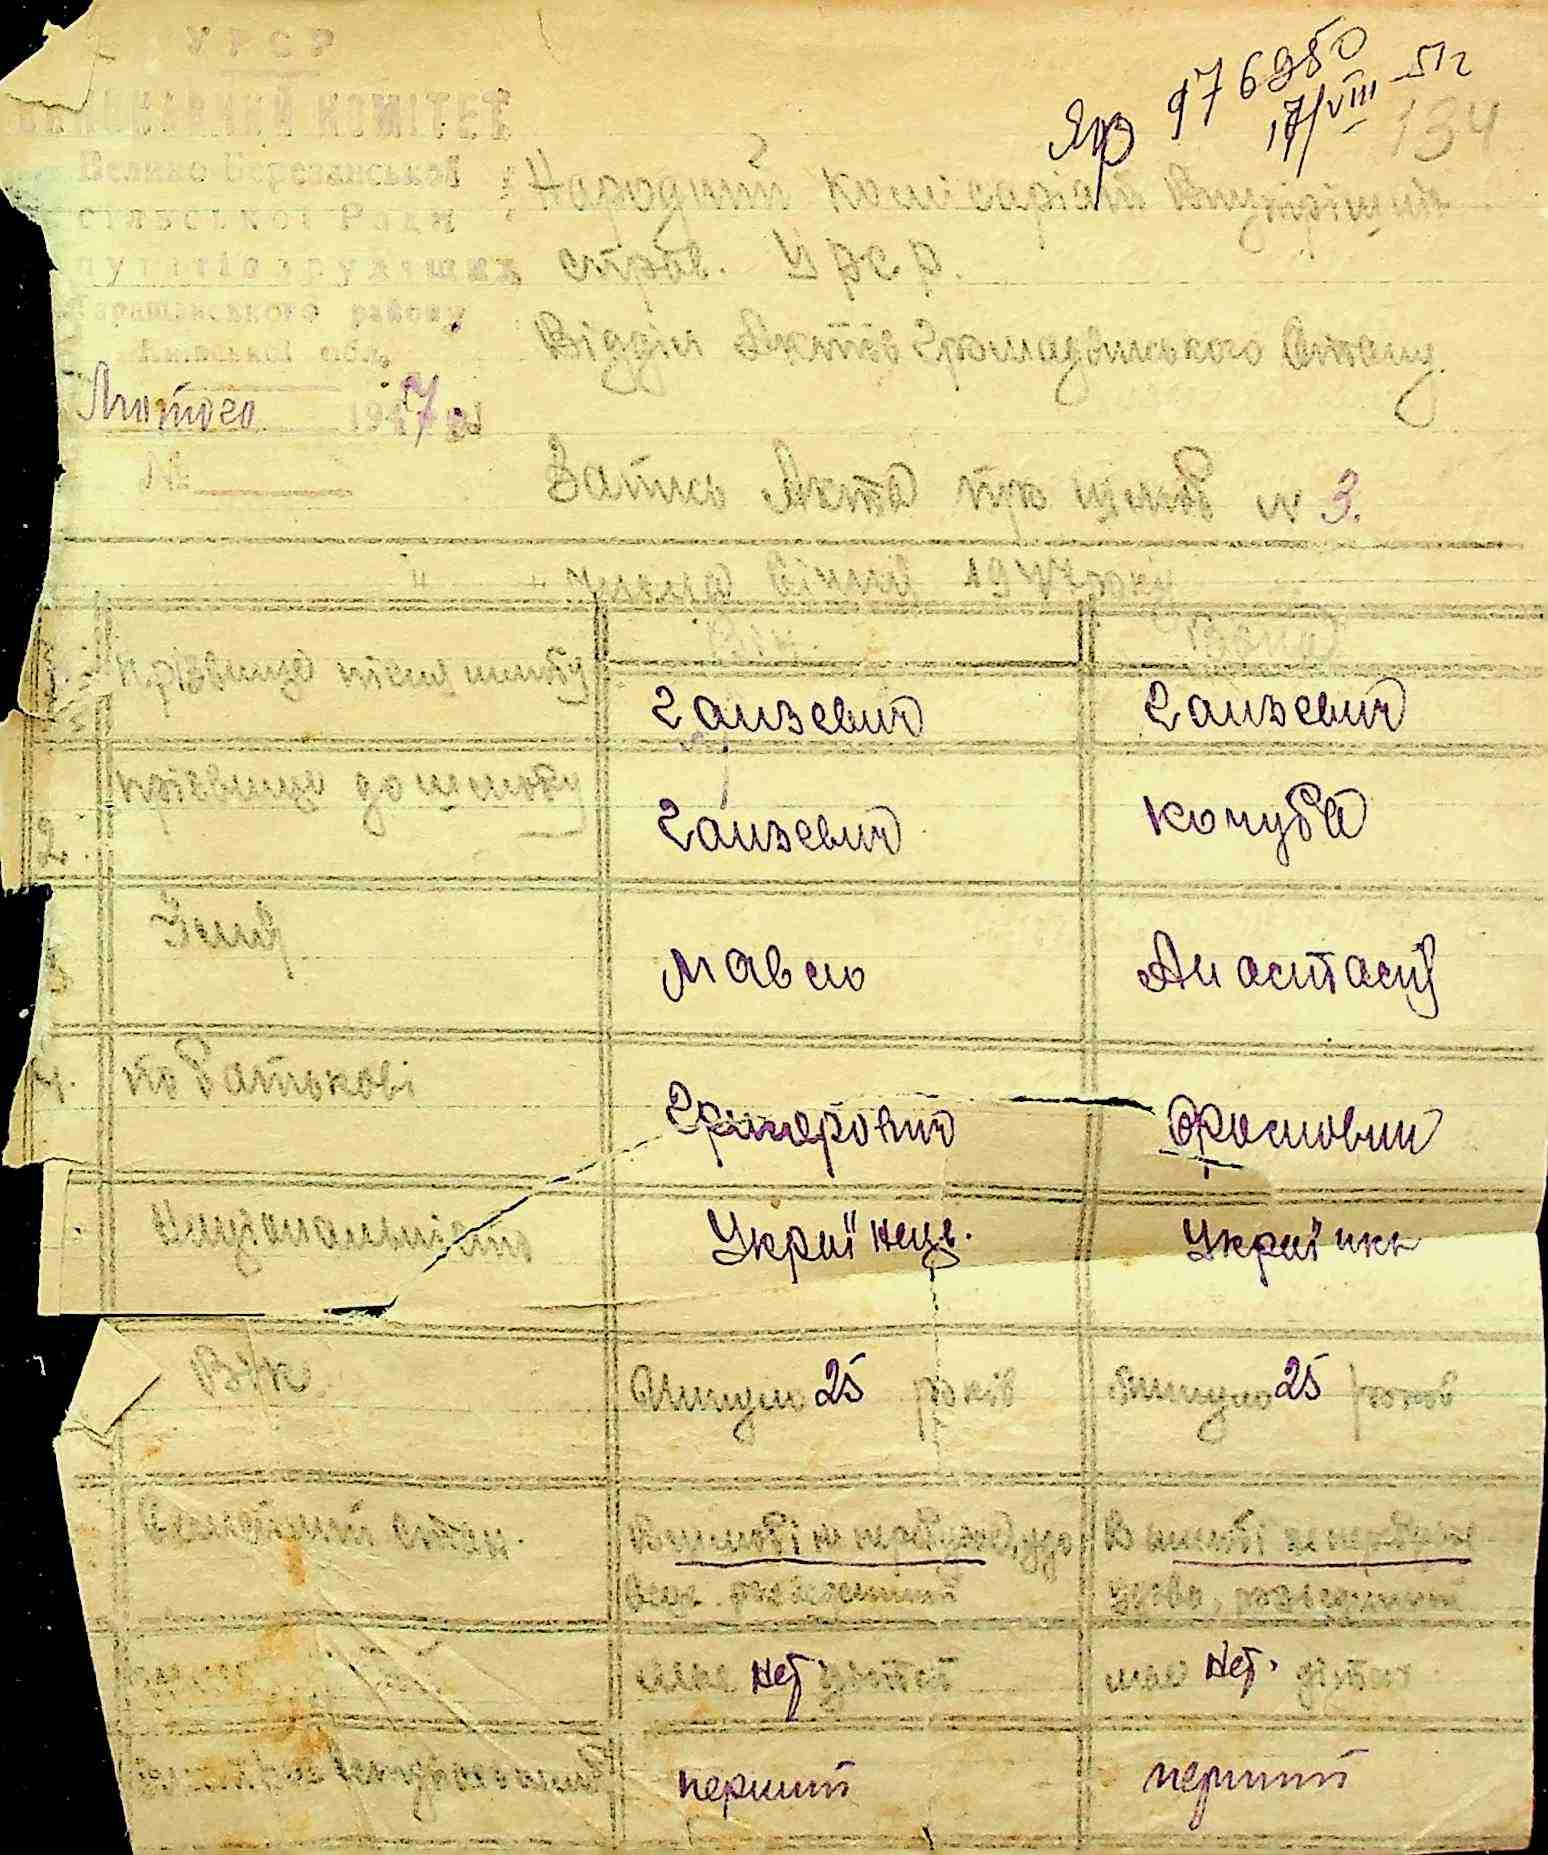 УРСР
ВИКОНАВЧИЙ КОМІТЕТ
Велико-Березанської
сільської Ради
депутатів трудящих
Таращанського району
Київської обл.
Лютого 1947 р.
№
ЯР 976950
17/VIII 51г
134
Народний комісаріат Внутрішніх
справ. УРСР.
Відділ Актів Громадянського Стану
Запись Акта про шлюб № 3.
1947 року
Він Вона
1. прізвище після шлюбу Ганзевич Ганзевич
2. прізвище до шлюбу Ганзевич Кочубей
3 Імя Павло Анастасія
4. по батькові Григорович
Національність Українець. Українка
Вік Минуло 25 років Минуло 25 років
Сімейний стан. В шлюбі не перебував, удо- В шлюбі не перебувала
вець. розведений удова, розведений
має нет дітей має нет. дітей
перший перший